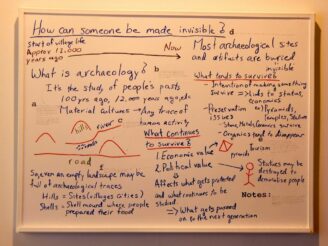 How can someone be made invisible? d
Start of village life
Approx 12,000
years ago
Now
Most archaeological sites
and artifacts are buried
invisible
What is archaeology? b
It's the study of people's pasts
100 yrs ago, 12,000 years ago, etc
Material cultures → Any trace of
human activity
hill
river
c
islands
road
So, even an empty landscape may be
full of archaeological traces
Hills = Sites (villages cities)
Shells = Shell mound where people
prepared their food
What continues
to survive?
1. Economic value
2. Political value
Tourism
periods
Affects what gets protected
and what continues to be
studied
→ What gets passed
on to the next generation
What tends to survive?
- Intention of making something
survive → Links to status,
economics
- Preservation
issues
→ Pyramids,
temples, statues
- Stone, Metals, Ceramics survive
- Organics tend to disappear
Statues may be
destroyed to
demoralise people
Notes: